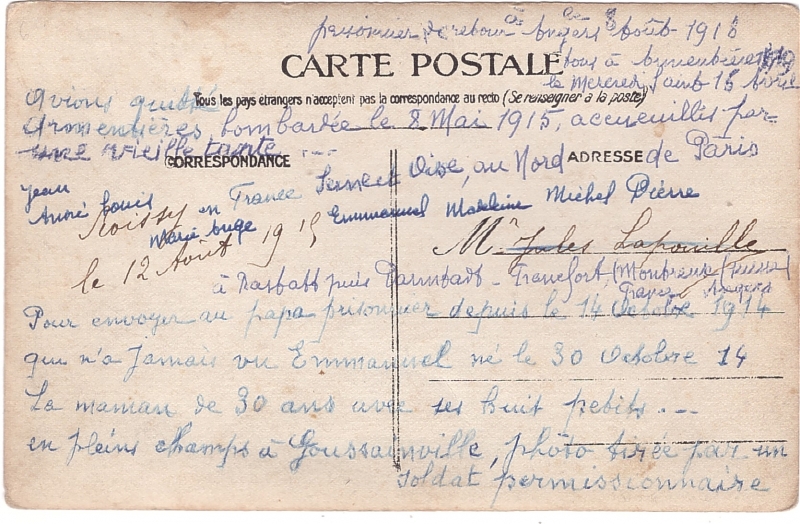 prisonnier de retour à Angers le 8 Août 1918
CARTE POSTALE
tous à 1919
le Mercredi, 15 Avril
avions quitté
Tous les pays étrangers n'acceptent pas la correspondance au recto (Se renseigner à la poste)
Armentières, bombardée le 8 Mai 1915, accueuillis par
une vieille tante ...
CORRESPONDANCE
ADRESSE
Seine et Oise, au Nord de Paris
Jean
André Louis
Roissy en France
Marie Ange
Emmanuel Madeleine Michel Pierre
le 12 Août 1915
Mr Jules Lapouille
à Rastatt puis Darmstadt - Francfort, (Montreux (Suisse)
France Angers
Pour envoyer au papa prisonnier depuis le 14 Octobre 1914
qui n'a jamais vu Emmanuel né le 30 Octobre 14
La maman de 30 ans avec ses huit petits ...
en pleins champs à Goussainville, photo tirée par un
soldat permissionnaire